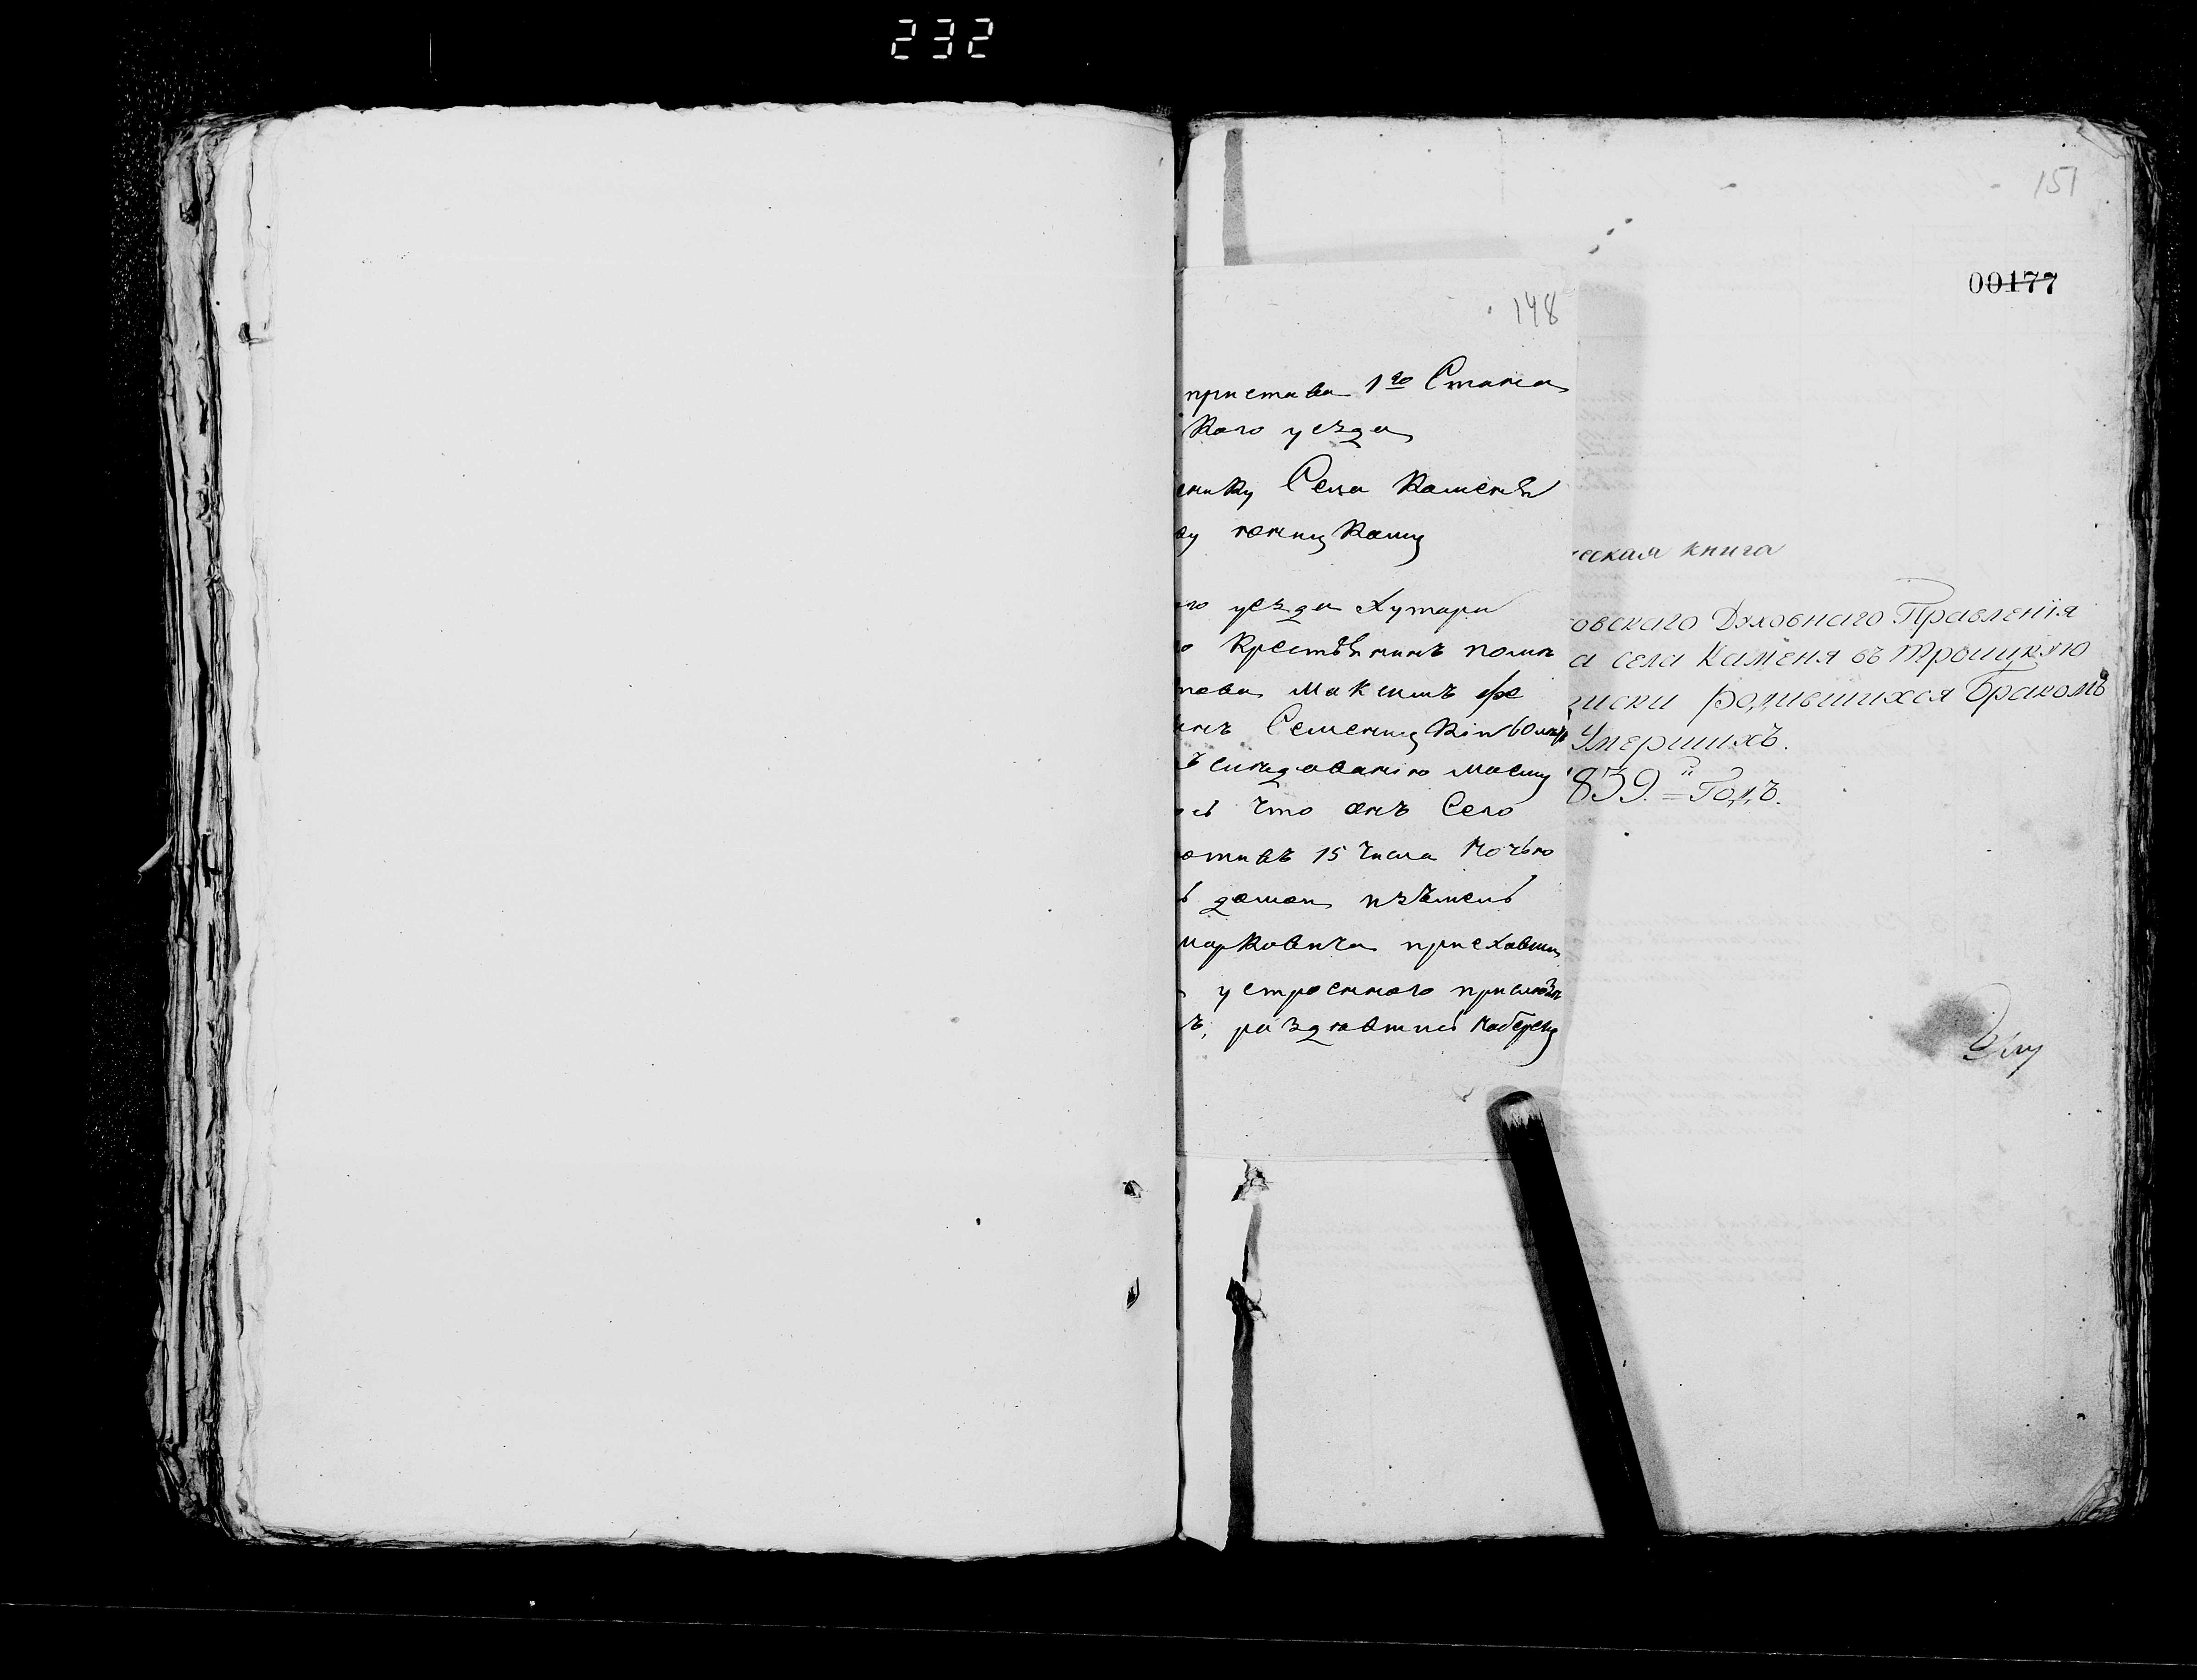 232
151
00177
148
пристава 1го Стана
кого уезда
енику Села Каменя
ву тониц кому
го уезда Хутара
о Крестьянинъ поми
нова Максимъ фе
инъ Семениц
ъ следованию моему
сь что онъ Сего
отивъ 15 числа Ночью
ь дома
марковича приехавши
устроенного
ъ, раздевшись наберегу
еская книга
овскаго Духовнаго Правленія
а села Каменя въ Троицкую
писки родившихся Бракомъ
Умершихъ.
1839.й Годъ.